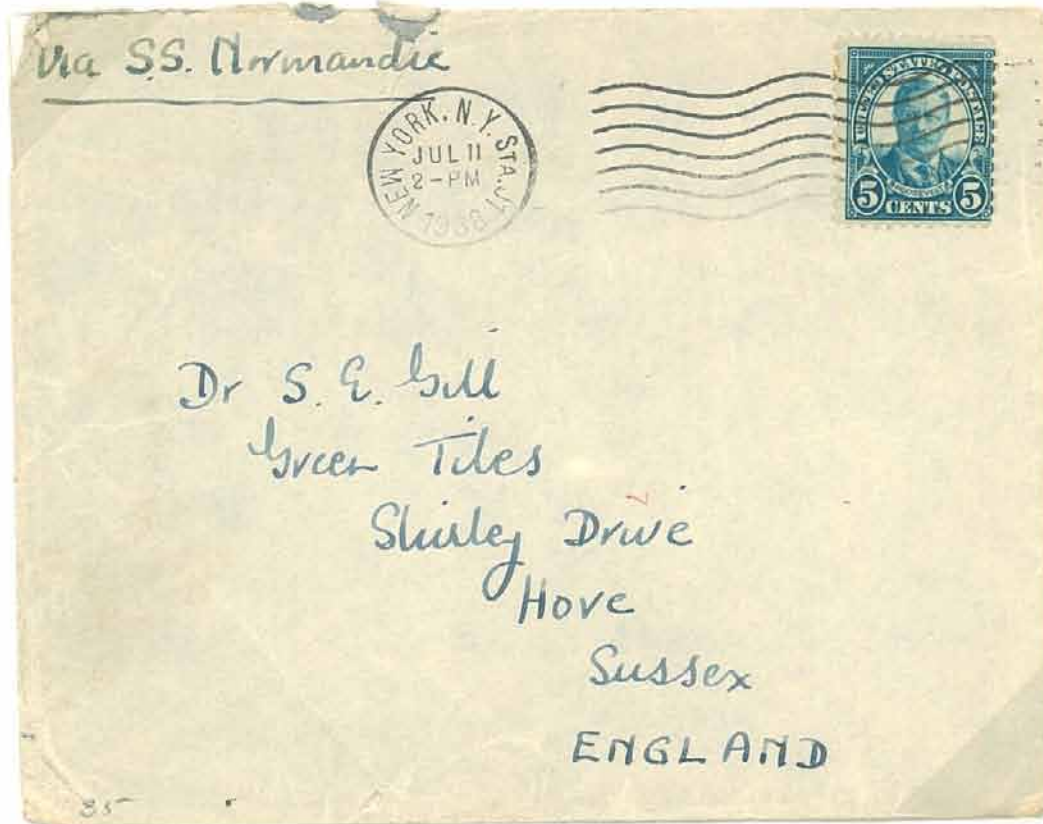 Via S.S. Normandie
NEW YORK, N.Y. STA.
JUL 11
2-PM
UNITED STATES POSTAGE
ROOSEVELT
5 CENTS 5
Dr S. E. Gill
Green Tiles
Shirley Drive
Hove
Sussex
ENGLAND
35